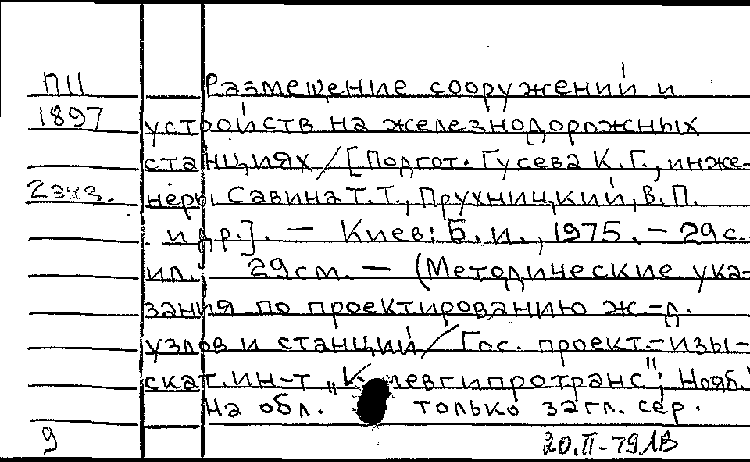 П11 Размещение сооружений и
1897 устройств на железнодорожных
станциях / [Подгот. Гусева К.Г., инже-
2экз. неры Савина Т.Т., Прухницкий, В.П.
и др.]. — Киев: Б.и., 1975. — 29 с.
ил.; 29 см. — (Методические ука-
зания по проектированию ж-д.
узлов и станций / Гос. проект.-изы-
скат. ин-т „Киевгипротранс"; Нояб.
На обл. только загл. сер.
9 20.II-79